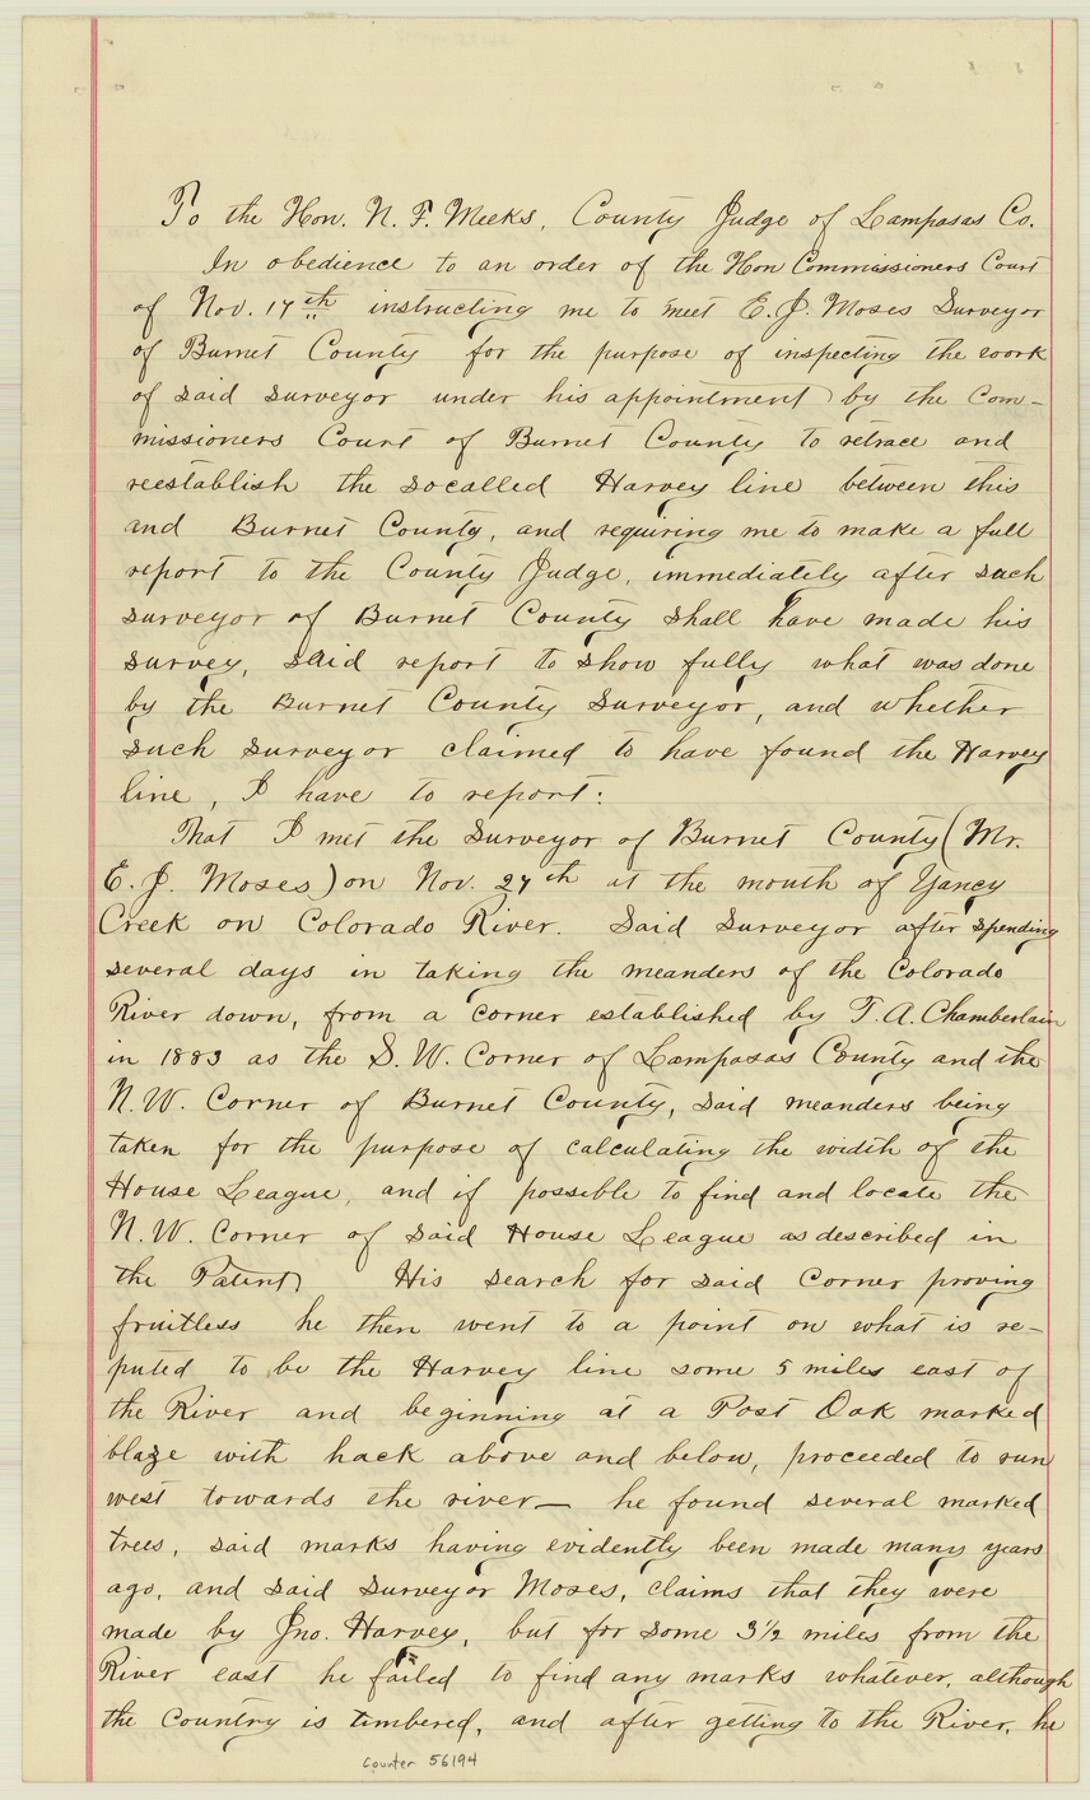 To the Hon. N. F. Meeks, County Judge of Lampasas Co.
In obedience to an order of the Hon Commissioners Court
of Nov. 17th instructing me to meet E. J. Moses Surveyor
of Burnet County for the purpose of inspecting the work
of said surveyor under his appointment by the Com-
missioners Court of Burnet County to retrace and
reestablish the socalled Harvey line between this
and Burnet County, and requiring me to make a full
report to the County Judge, immediately after such
surveyor of Burnet County shall have made his
survey, said report to show fully what was done
by the Burnet County Surveyor, and whether
such surveyor claimed to have found the Harvey
line, I have to report:
That I met the Surveyor of Burnet County (Mr.
E. J. Moses) on Nov. 27th at the mouth of Yancy
Creek on Colorado River. Said Surveyor after spending
several days in taking the meanders of the Colorado
River down, from a corner established by T. A. Chamberlain
in 1883 as the S. W. Corner of Lampasas County and the
N. W. Corner of Burnet County, said meanders being
taken for the purpose of calculating the width of the
House League, and if possible to find and locate the
N. W. Corner of said House League as described in
the Patent His search for said Corner proving
fruitless he then went to a point on what is re-
puted to be the Harvey line some 5 miles east of
the River and beginning at a Post Oak marked
blaze with hack above and below, proceeded to run
west towards the river — he found several marked
trees, said marks having evidently been made many years
ago, and said surveyor Moses, claims that they were
made by Jno. Harvey, but for some 3½ miles from the
River east he failed to find any marks whatever, although
the Country is timbered, and after getting to the River, he
Counter 56194